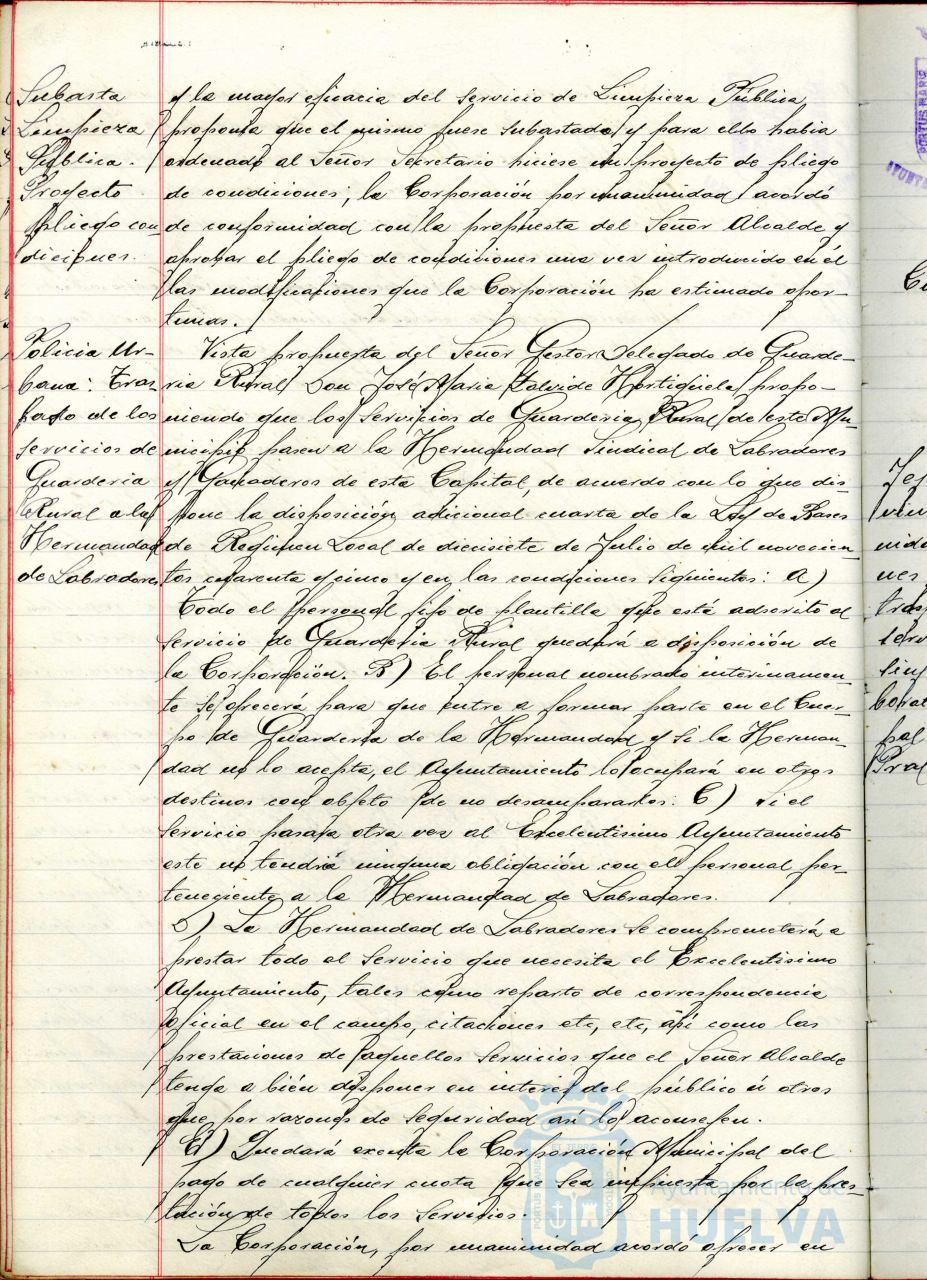 Subasta
Limpieza
Pública.
Proyecto
pliego con
diciones.
y la mayor eficacia del servicio de Limpieza Pública,
proponía que el mismo fuese subastado, y para ello habia
ordenado al Señor Secretario hiciese un proyecto de pliego
de condiciones; la Corporación por unanimidad acordó
de conformidad con la propuesta del Señor Alcalde y
aprobar el pliego de condiciones una vez introducido en él
las modificaciones que la Corporación ha estimado opor-
tunas.
Policia Ur-
bana: Tras
pado de los
servicios de
Guarderia
Rural a la
Hermandad
de Labradores
Vista propuesta del Señor Gestor Delegado de Guarde-
ria Rural Don José Maria Hortigüela propo-
niendo que los Servicios de Guarderia Rural de este Mu-
nicipio pasen a la Hermandad Sindical de Labradores
y Ganaderos de esta Capital, de acuerdo con lo que dis-
pone la disposición adicional cuarta de la Ley de Bases
de Regimen Local de diecisiete de Julio de mil novecien-
tos cuarenta y cinco y en las condiciones siguientes: A)
Todo el personal fijo de plantilla que está adscrito al
servicio de Guarderia Rural quedará a disposición de
la Corporación. B) El personal nombrado interinamen-
te se ofrecerá para que entre a formar parte en el Cuer-
po de Guarderia de la Hermandad y si la Herman-
dad no lo acepta, el Ayuntamiento lo ocupará en otros
destinos con objeto de no desampararlos. C) Si el
servicio pasara otra vez al Excelentisimo Ayuntamiento
este no tendrá ninguna obligación con el personal per-
teneciente a la Hermandad de Labradores.
D) La Hermandad de Labradores se comprometerá a
prestar todo el Servicio que necesita el Excelentisimo
Ayuntamiento, tales como reparto de correspondencia
oficial en el campo, citaciones etc, etc, asi como las
prestaciones de aquellos Servicios que el Señor Alcalde
tenga a bién disponer en interés del público ú otros
que por razones de seguridad así lo aconsejen.
E) Quedará exenta la Corporación Municipal del
pago de cualquier cuota que sea impuesta por la pres-
tación de todos los servicios.
La Corporación, por unanimidad acordó ofrecer en
Ayuntamiento de
HUELVA
PORTUS MARIS